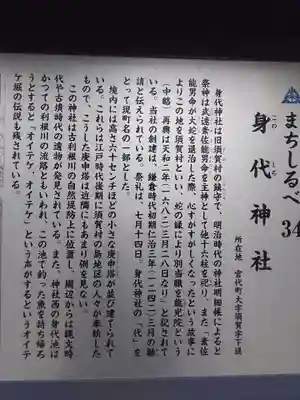 まちしるべ 34
身代神社
この しろ
所在地 宮代町大字須賀字下堤
身代神社は旧須賀村の鎮守で、明治時代の神社明細帳によると
祭神は武速素佐能男命を主神として他十六社を祀り、また「素佐
能男命が大蛇を退治した際、心すがすがしくなったという故事に
よりこの地を須賀村といい、蛇の縁により別当職を能光院という
(中略)再興は天和二年(一六八二)三月二八日なり」と記されて
いる。当社の創建は、鎌倉時代初期仁治三年(一二四二)三月の勧
請と伝えられている。祭礼は、七月十四日。身代神社の「代」を
とって現町名の一部とした。
境内には高さ六十センチほどの小さな庚申塔が並び建てられて
いる。これらは江戸時代後期に須賀村の島地区の人々が奉納した
もので、こうした庚申塔は近隣にもあまり例を見ない。
この神社は古利根川の自然堤防上に位置し、周辺からは縄文時
代や古墳時代の遺物が発見されている。また、神社西の身代池は
かつての利根川の流路ともいわれ、「この池で釣った魚を持ち帰ろ
うとすると「オイテケ、オイテケ」という声がするというオイテ
ケ堀の伝説も残されている。